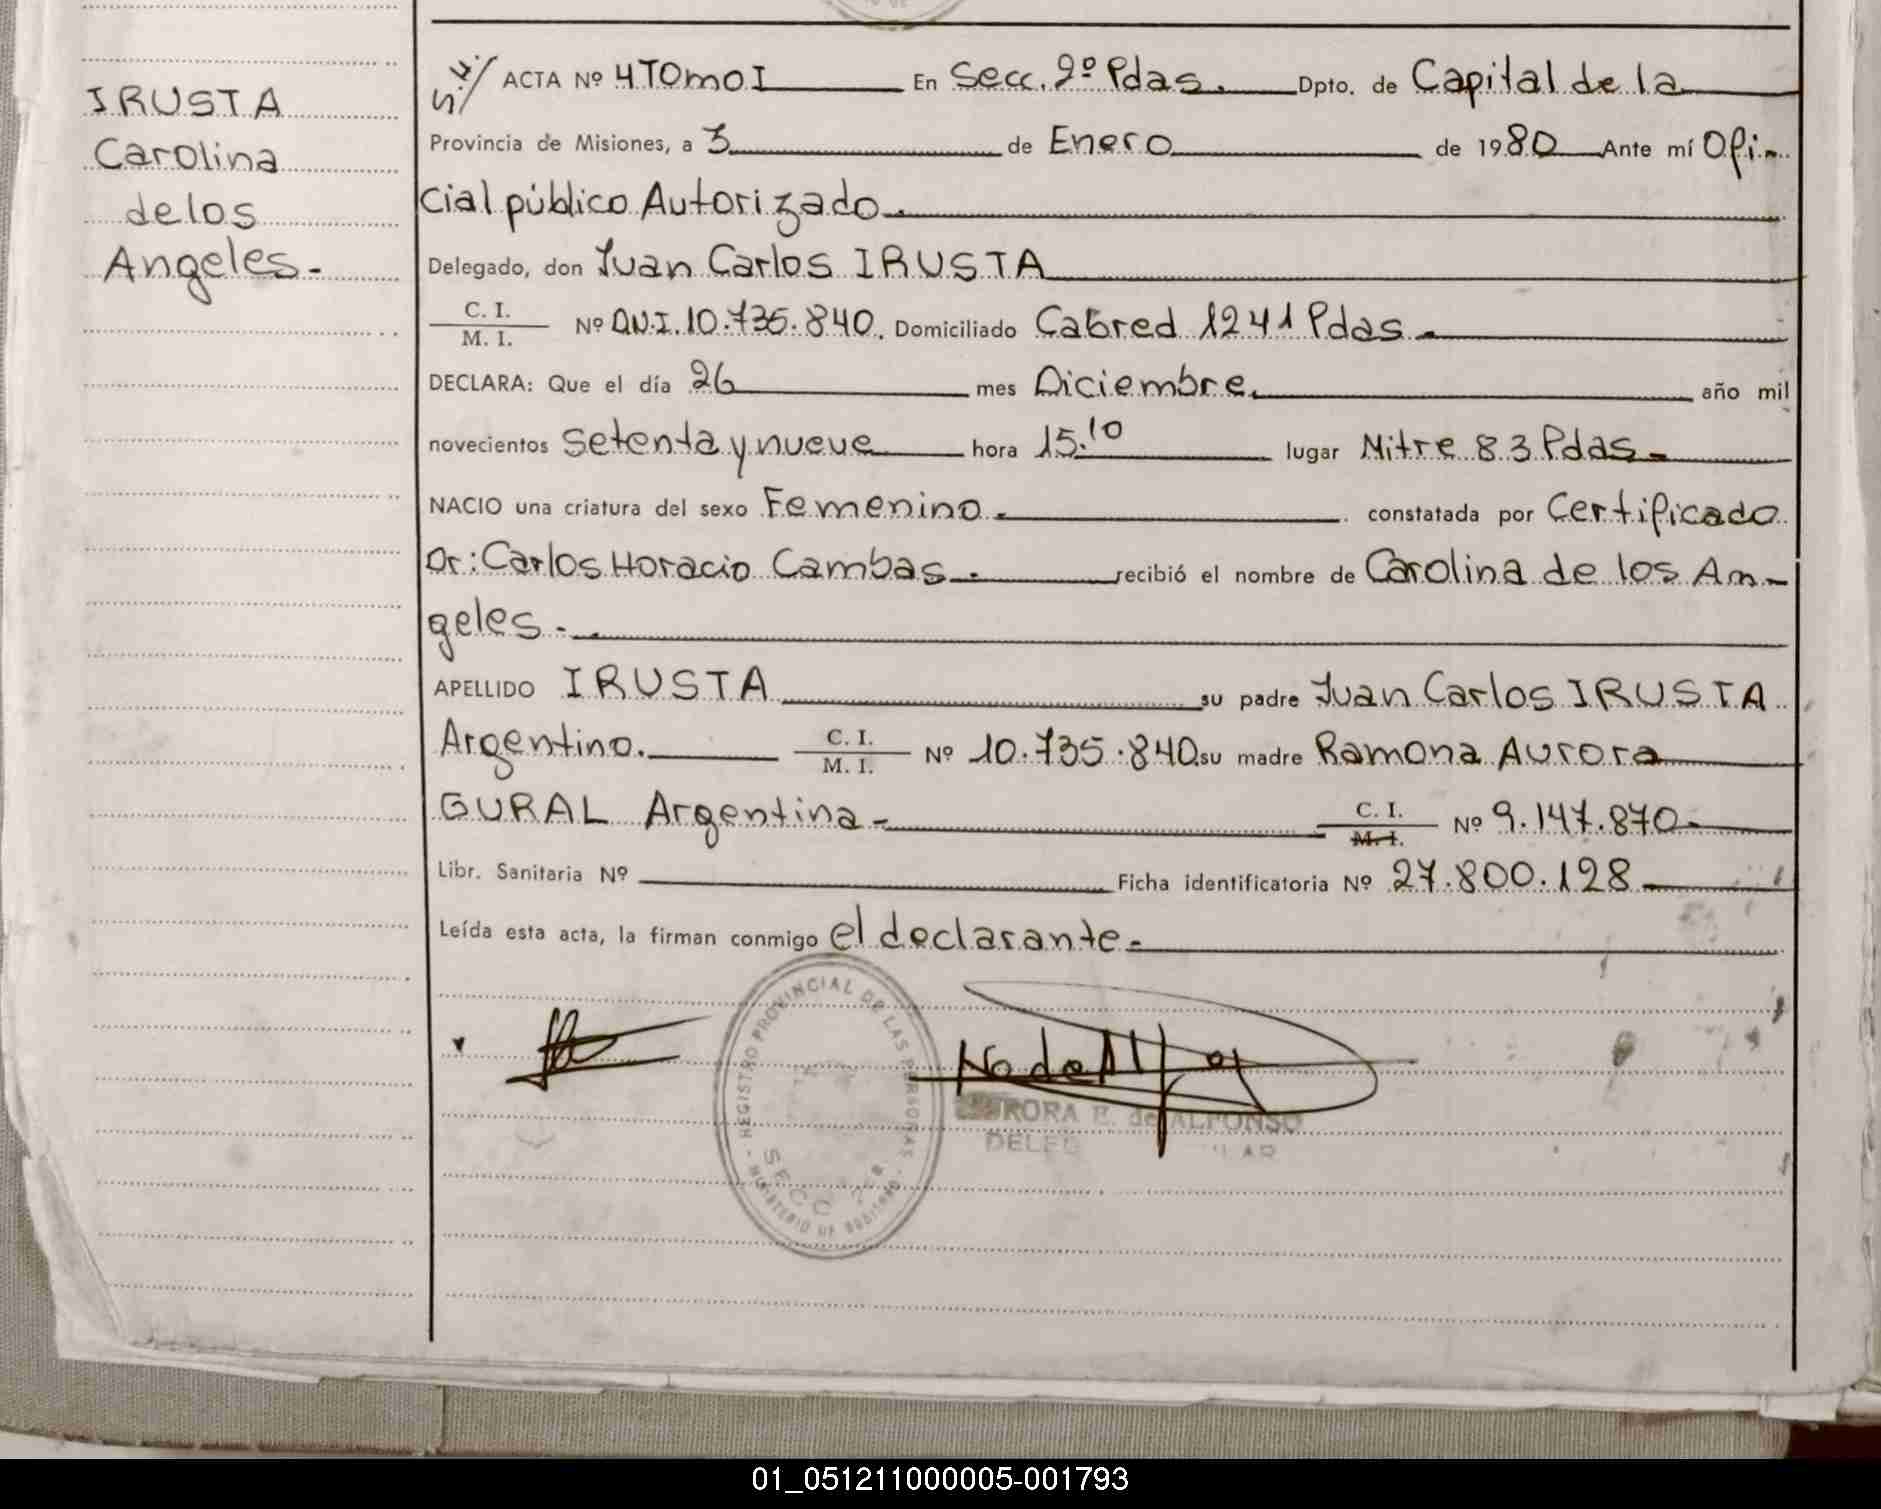 IRUSTA
Carolina
de los
Angeles.-
S.y/ ACTA Nº 4 TOmo I En Secc. 2º Pdas. Dpto. de Capital de la
Provincia de Misiones, a 3 de Enero de 1980 Ante mí Ofi-
cial público Autorizado.
Delegado, don Juan Carlos IRUSTA
C. I.
M. I. Nº D.N.I. 10.735.840. Domiciliado Cabred 1241 Pdas.
DECLARA: Que el día 26 mes Diciembre. año mil
novecientos setenta y nueve hora 15.10 lugar Mitre 83 Pdas.
NACIO una criatura del sexo Femenino. constatada por Certificado
Dr: Carlos Horacio Cambas. recibió el nombre de Carolina de los An-
geles.-
APELLIDO IRUSTA su padre Juan Carlos IRUSTA
Argentino. C. I.
M. I. Nº 10.735.840 su madre Ramona Aurora
GURAL Argentina- C. I.
M. I. Nº 9.147.870-
Libr. Sanitaria Nº Ficha identificatoria Nº 27.800.128
Leída esta acta, la firman conmigo el declarante.-
REGISTRO PROVINCIAL DE LAS PERSONAS
SECC
MINISTERIO DE GOBIERNO
E. de ALFONSO
01_051211000005-001793